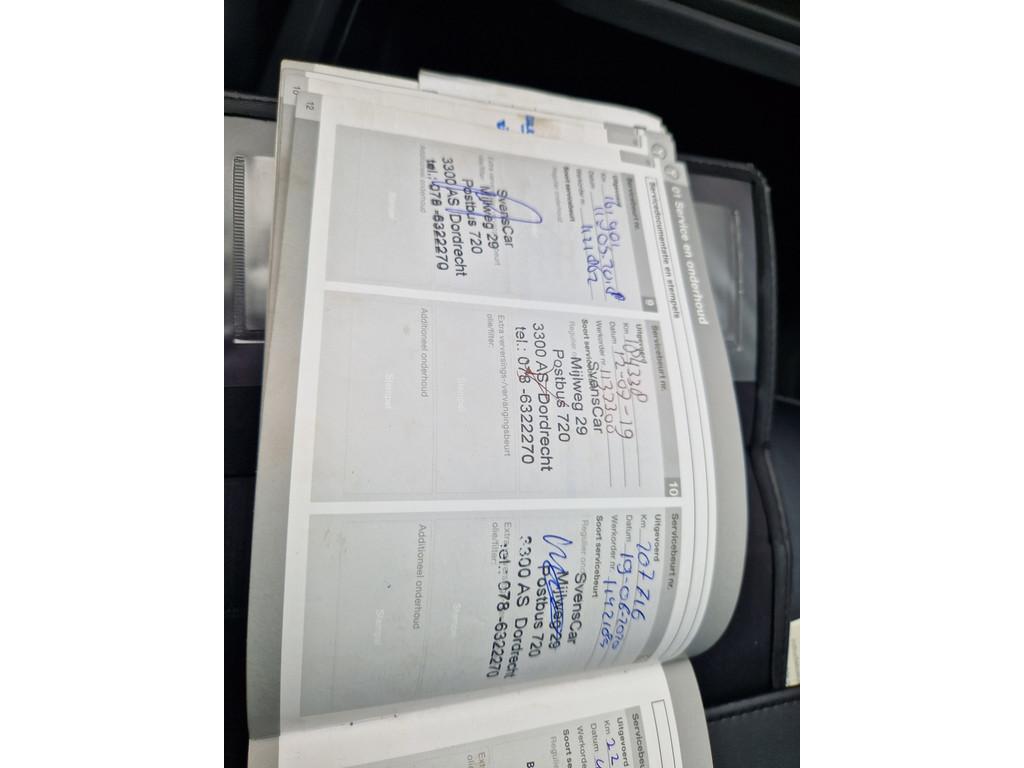 01 Service en onderhoud
Servicedocumentatie en stempels
Servicebeurt nr. 9
Uitgevoerd
Km
Datum 11-05-2018
Werkorder nr. 1121862
Soort servicebeurt
Regulier onderhoud
SvensCar
Mijlweg 29
Postbus 720
3300 AS Dordrecht
tel.: 078 -6322270
Stempel
Servicebeurt nr. 10
Uitgevoerd
Km 184338
Datum 12-07-19
Werkorder nr. 1133300
Soort servicebeurt
Regulier
SvensCar
Mijlweg 29
Postbus 720
3300 AS Dordrecht
tel.: 078 -6322270
Extra verversings-/vervangingsbeurt
olie/filter:
Stempel
Additioneel onderhoud
Stempel
Servicebeurt nr.
Uitgevoerd
Km 207216
Datum 19-06-2020
Werkorder nr. 1142183
Soort servicebeurt
Regulier
SvensCar
Mijlweg 29
Postbus 720
3300 AS Dordrecht
tel.: 078-6322270
Extra
olie/filter:
Stempel
Additioneel onderhoud
Stempel
12
10
Servicebeurt
Uitgevoerd
Km 22
Datum
Werkorder
Soort se
Regul